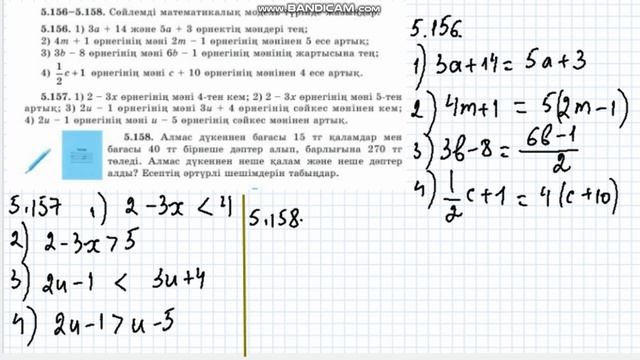 www.BANDICAM.com
5.156–5.158. Сөйлемді математикалық модель түрінде жазыңдар.
5.156. 1) 3a + 14 және 5a + 3 өрнектің мәндері тең;
2) 4m + 1 өрнегінің мәні 2m − 1 өрнегінің мәнінен 5 есе артық;
3) 3b − 8 өрнегінің мәні 6b − 1 өрнегінің мәнінің жартысына тең;
4) 1/2 c + 1 өрнегінің мәні c + 10 өрнегінің мәнінен 4 есе артық.
5.157. 1) 2 − 3x өрнегінің мәні 4-тен кем; 2) 2 − 3x өрнегінің мәні 5-тен
артық; 3) 2u − 1 өрнегінің мәні 3u + 4 өрнегінің сәйкес мәнінен кем;
4) 2u − 1 өрнегінің мәні u − 5 өрнегінің сәйкес мәнінен артық.
5.158. Алмас дүкеннен бағасы 15 тг қаламдар мен
бағасы 40 тг бірнеше дәптер алып, барлығына 270 тг
төледі. Алмас дүкеннен неше қалам және неше дәптер
алды? Есептің әртүрлі шешімдерін табыңдар.
5.156.
1) 3a+14 = 5a+3
2) 4m+1 = 5(2m−1)
3) 3b−8 = 6b−1/2
4) 1/2 c+1 = 4(c+10)
5.157 1) 2−3x < 4
2) 2−3x > 5
3) 2u−1 < 3u+4
4) 2u−1 > u−5
5.158.